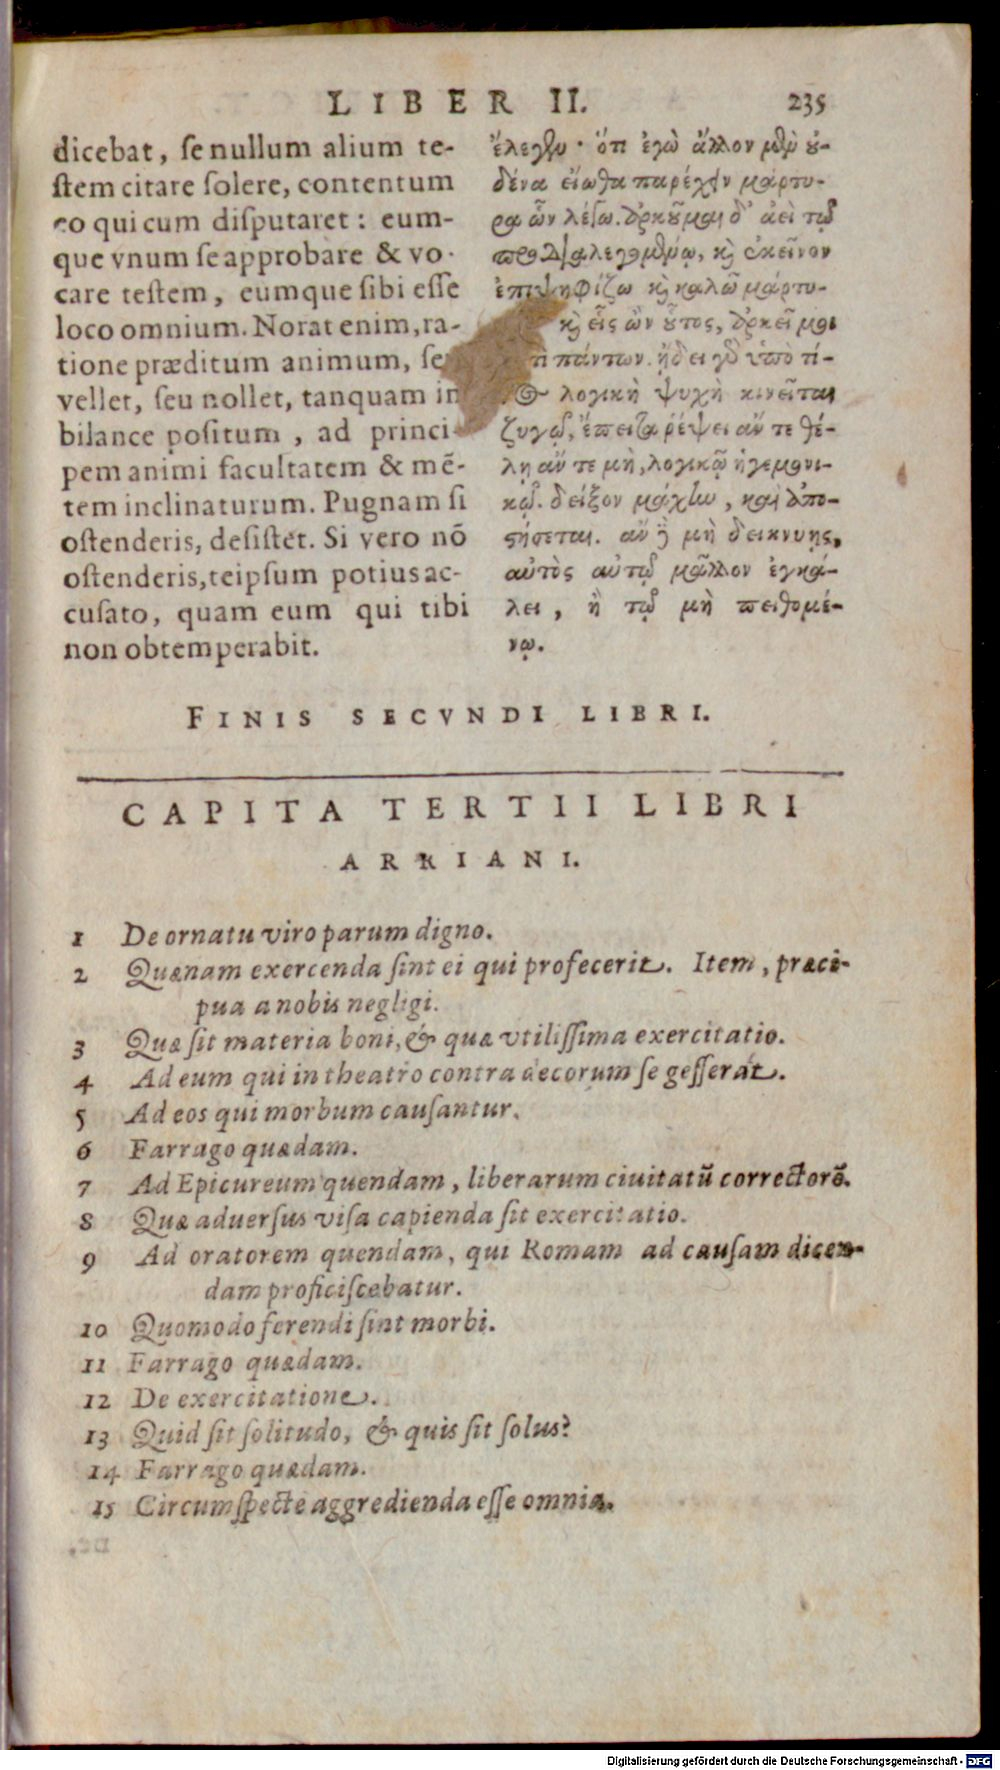 LIBER II. 235
dicebat, se nullum alium te-
ſtem citare ſolere, contentum
eo qui cum diſputaret: eum-
que vnum ſe approbare & vo-
care teſtem, eumque ſibi eſſe
loco omnium. Norat enim, ra-
tione præditum animum, ſeu
vellet, ſeu nollet, tanquam in
bilance poſitum, ad princi-
pem animi facultatem & mē-
tem inclinaturum. Pugnam ſi
oſtenderis, deſiſtet. Si vero nō
oſtenderis, teipſum potius ac-
cuſato, quam eum qui tibi
non obtemperabit.
ἔλεγεν· ὅτι ἐγὼ ἄλλον μὲν οὐ-
δένα εἴωθα παρέχειν μάρτυ-
ρα ὧν λέγω. ἀρκοῦμαι δ' ἀεὶ τῷ
προσδιαλεγομένῳ, καὶ ἐκεῖνον
ἐπιψηφίζω καὶ καλῶ μάρτυ-
καὶ εἷς ὢν οὗτος, ἀρκεῖ μοι
ἀντὶ πάντων. ᾔδει γὰρ ὑπὸ τί-
νος λογικὴ ψυχὴ κινεῖται
ζυγῷ, ἔπειτα ῥέψει ἄν τε θέ-
λῃ ἄν τε μὴ, λογικῷ ἡγεμονι-
κῷ. δεῖξον μάχην, καὶ ἀπο-
στήσεται. ἂν δὲ μὴ δεικνύῃς,
αὐτὸς αὑτῷ μᾶλλον ἐγκά-
λει, ἢ τῷ μὴ πειθομέ-
νῳ.
FINIS SECVNDI LIBRI.
CAPITA TERTII LIBRI
ARRIANI.
1 De ornatu viro parum digno.
2 Quænam exercenda ſint ei qui profecerit. Item, præci-
pua a nobis negligi.
3 Quæ ſit materia boni, & quæ vtiliſſima exercitatio.
4 Ad eum qui in theatro contra decorum ſe geſſerat.
5 Ad eos qui morbum cauſantur.
6 Farrago quædam.
7 Ad Epicureum quendam, liberarum ciuitatū correctorē.
8 Quæ aduerſus viſa capienda ſit exercitatio.
9 Ad oratorem quendam, qui Romam ad cauſam dicen-
dam proficiſcebatur.
10 Quomodo ferendi ſint morbi.
11 Farrago quædam.
12 De exercitatione.
13 Quid ſit ſolitudo, & quis ſit ſolus?
14 Farrago quædam.
15 Circumſpecte aggredienda eſſe omnia.
Digitalisierung gefördert durch die Deutsche Forschungsgemeinschaft - DFG